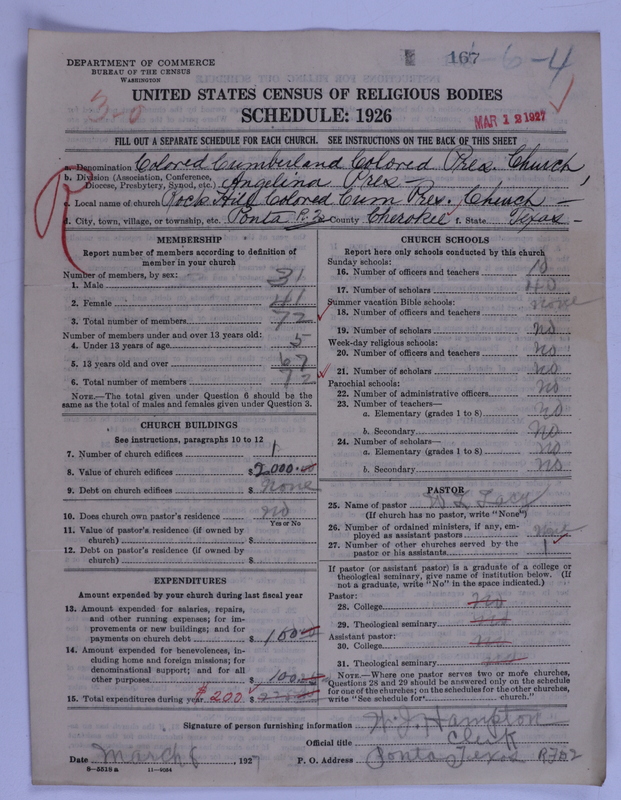 167 -6-4
DEPARTMENT OF COMMERCE
BUREAU OF THE CENSUS
WASHINGTON
3-0
UNITED STATES CENSUS OF RELIGIOUS BODIES
SCHEDULE: 1926
MAR 12 1927
FILL OUT A SEPARATE SCHEDULE FOR EACH CHURCH. SEE INSTRUCTIONS ON THE BACK OF THIS SHEET
a. Denomination Colored Cumberland Colored Pres. Church
b. Division (Association, Conference, Diocese, Presbytery, Synod, etc.) Angelina Pres
c. Local name of church Rock Hill Colored Cum Pres. Church
d. City, town, village, or township, etc. Ponta R. 2 e. County Cherokee f. State Texas
R
MEMBERSHIP
Report number of members according to definition of
member in your church
Number of members, by sex:
1. Male 31
2. Female 41
3. Total number of members 72
Number of members under and over 13 years old:
4. Under 13 years of age 5
5. 13 years old and over 67
6. Total number of members 72
NOTE.—The total given under Question 6 should be the
same as the total of males and females given under Question 3.
CHURCH BUILDINGS
See instructions, paragraphs 10 to 12
7. Number of church edifices 1
8. Value of church edifices $2,000.00
9. Debt on church edifices $ None
10. Does church own pastor's residence No
Yes or No
11. Value of pastor's residence (if owned by
church) $
12. Debt on pastor's residence (if owned by
church) $
EXPENDITURES
Amount expended by your church during last fiscal year
13. Amount expended for salaries, repairs,
and other running expenses; for im-
provements or new buildings; and for
payments on church debt $ 100.00
14. Amount expended for benevolences, in-
cluding home and foreign missions; for
denominational support; and for all
other purposes $ 100.00
15. Total expenditures during year $200 $
CHURCH SCHOOLS
Report here only schools conducted by this church
Sunday schools:
16. Number of officers and teachers 10
17. Number of scholars 40
Summer vacation Bible schools: none
18. Number of officers and teachers
19. Number of scholars no
Week-day religious schools:
20. Number of officers and teachers no
21. Number of scholars no
Parochial schools:
22. Number of administrative officers no
23. Number of teachers—
a. Elementary (grades 1 to 8) no
b. Secondary No
24. Number of scholars—
a. Elementary (grades 1 to 8) no
b. Secondary No
PASTOR
25. Name of pastor W L Lacy
(If church has no pastor, write "None")
26. Number of ordained ministers, if any, em-
ployed as assistant pastors None
27. Number of other churches served by the
pastor or his assistants 1
If pastor (or assistant pastor) is a graduate of a college or
theological seminary, give name of institution below. (If
not a graduate, write "No" in the space indicated.)
Pastor:
28. College no
29. Theological seminary no
Assistant pastor:
30. College no
31. Theological seminary no
NOTE.—Where one pastor serves two or more churches,
Questions 28 and 29 should be answered only on the schedule
for one of the churches; on the schedules for the other churches,
write "See schedule for church."
Signature of person furnishing information W. J. Hampton
Official title Clerk
Date March 8, 1927 P. O. Address Ponta Texas RFD2
8-5518a 11-9084